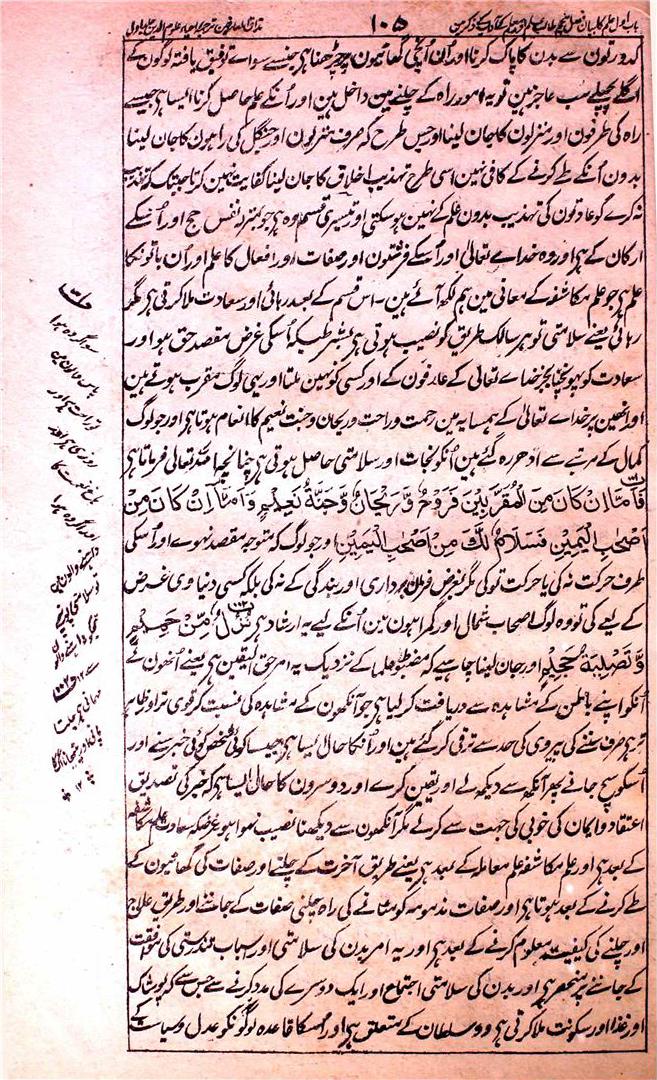 ۱۰۵
کدورتون سے بدن کا پاک کرنا اور ان اونچی گھاٹیون پر چڑھنا ہی جنسے سواے توفیق یافتہ لوگون کے
اگلے پچھلے سب عاجز ہین تو یہ امور راہ کے چلنے مین داخل ہین اور اُنکے علم حاصل کرنا ایسا ہی جیسے
راہ کی طرفون اور منزلون کا جان لینا اور جس طرح کہ صرف منزلون اور جنگل کی راہون کا جان لینا
بدون اُنکے طے کرنے کے کافی نہین اسی طرح تہذیب اخلاق کا جان لینا کفایت نہین کرتا جبتک کہ تہذیب
نہ کرے گو عادتون کی تہذیب بدون علم کے نہین ہو سکتی اور تیسری قسم وہ ہی جو بمنزلہ نفس حج اور اُسکے
ارکان کے ہی اور وہ خداے تعالیٰ اور اُسکے فرشتون اور صفات اور افعال کا علم اور اُن باتونکا
علم ہی جو علم مکاشفہ کے معانی مین ہم لکھ آئے ہین۔ اس قسم کے بعد رہائی اور سعادت ملا کرتی ہی مگر
رہائی یعنے سلامتی تو ہر سالک طریق کو نصیب ہوتی ہی بشرطیکہ اُسکی غرض مقصد حق ہو اور
سعادت کو پہونچنا بجز خداے تعالیٰ کے عارفون کے اور کسی کو نہین ملتا اور یہی لوگ مقرب ہوتے ہین
اور انھین پر خداے تعالیٰ کے ہمسایہ مین رحمت و راحت و ریحان و جنت نعیم کا انعام ہوتا ہی اور جو لوگ
کمال کے مرتبے سے ادھر رہ گئے ہین اُنکو نجات اور سلامتی حاصل ہوتی ہی چنانچہ اللہ تعالی فرماتا ہی
فَاَمَّا اِنْ كَانَ مِنَ الْمُقَرَّبِيْنَ فَرَوْحٌ وَّ رَيْحَانٌ وَّجَنَّةُ نَعِيْمٍ وَاَمَّا اِنْ كَانَ مِنْ
اَصْحٰبِ الْيَمِيْنِ فَسَلَامٌ لَّكَ مِنْ اَصْحٰبِ الْيَمِيْنِ اور جو لوگ کہ متوجہ مقصد نہوے اور اُسکی
طرف حرکت نہ کی یا حرکت تو کی مگر بغرض فرمان برداری اور بندگی کے نہ کی بلکہ کسی دنیاوی غرض
کے لیے کی تو وہ لوگ اصحاب شمال اور گمراہون مین اُنکے لیے یہ ارشاد ہی نُزُلٌ مِّنْ حَمِيْمٍ
وَّ تَصْلِيَةُ جَحِيْمٍ اور جان لینا چاہیے کہ مضبوط علما کے نزدیک یہ امر حق الیقین ہی یعنے اُنھون نے
اُنکو اپنے باطن کے مشاہدہ سے دریافت کر لیا ہی جو آنکھون کے مشاہدہ کی نسبت کر قوی تر اور ظاہر
تر ہی صرف سننے کی پیروی کی حد سے ترقی کر گئے ہین اور اُنکا حال ایسا ہی جیسا کوئی شخص کوئی خبر سنے اور
اُسکو سچ جانے پھر آنکھ سے دیکھ لے اور یقین کرے اور دوسرون کا حال ایسا ہی کہ خبر کی تصدیق
اعتقاد و ایمان کی خوبی کی جہت سے کر لے مگر آنکھون سے دیکھنا نصیب نہوا ہو غرضکہ سعادت علم مکاشفہ
کے بعد ہی اور علم مکاشفہ علم معاملہ کے بعد ہی یعنے طریق آخرت کے چلنے اور صفات کی گھاٹیون کے
طے کرنے کے بعد ہوتا ہی اور صفات مذمومہ کو مٹانے کی راہ چلنی صفات کے جاننے اور طریق علاج
اور چلنے کی کیفیت معلوم کرنے کے بعد ہی اور یہ امر بدن کی سلامتی اور اسباب تندرستی کی موافقت
کے جاننے پر منحصر ہی اور بدن کی سلامتی اجتماع اور ایک دوسرے کی مدد کرنے سے جس سے کہ پوشاک
اور غذا اور سکونت ملا کرتی ہی وہ سلطان کے متعلق ہی اور اُسکا قاعدہ لوگونکو عدل و سیاست کے
سو اگر وہ ہوا
پاس والون مین
تو راحت ہی اور
روزی ہی اور
باغ نعمت کا
اور اگر وہ ہوا
داہنے والون مین
تو سلامتی پہونچے
تجکو داہنے والون
سے ۱۲
مہمانی ہی جلتا
پانی اور بیٹھانا آگ مین
۱۲